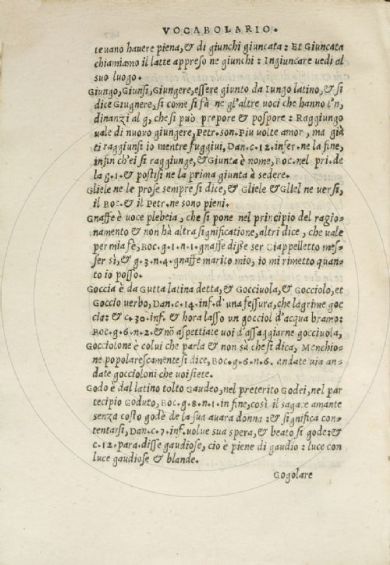 VOCABOLARIO.
teuano hauere piena, & di giunchi giuncata: Et Giuncata
chiamiamo il latte appreso ne giunchi: Ingiuncare uedi al
suo luogo.
Giungo, Giunsi, Giungere, essere giunto da Iungo latino, & si
dice Giugnere, si come si fà ne gl'altre uoci che hanno l'n,
dinanzi al g, che si può prepore & pospore: Raggiungo
uale di nuouo giungere, Petr. son. Piu uolte amor, ma già
ti raggiunsi io mentre fuggiui, Dan. c. 12. infer. ne la fine,
infin ch'ei si raggiunge, & Giunta è nome, Boc. nel pri. de
la g. 1. & postisi ne la prima giunta à sedere.
Gliele ne le prose sempre si dice, & Gliele & Gliel ne uersi,
il Boc. & il Petr. ne sono pieni.
Gnaffe è uoce plebeia, che si pone nel principio del ragio-
namento & non hà altra significatione, altri dice, che uale
per mia fè, Boc. g. 1. n. 1. gnaffe disse ser Ciappelletto mes-
ser sì, & g. 3. n. 4. gnaffe marito mio, io mi rimetto quan-
to io posso.
Goccia è da Gutta latina detta, & Gocciuola, & Gocciolo, et
Goccio uerbo, Dan. c. 14. inf. d'una fessura, che lagrime goc
cia: & c. 30. inf. & hora lasso un gocciol d'acqua bramo:
Boc. g. 6. n. 2. & nō aspettiate uoi d'assaggiarne gocciuola,
Gocciolone è colui che parla & non sà che si dica, Menchio-
ne popolarescamente si dice, Boc. g. 6. n. 6. andate uia an-
date goccioloni che uoi siete.
Godo è dal latino tolto Gaudeo, nel preterito Godei, nel par
tecipio Goduto, Boc. g. 8. n. 1. in fine, così il sagace amante
senza costo godè de la sua auara donna: & significa con-
tentarsi, Dan. c. 7. inf. uolue sua spera, & beato si gode: &
c. 12. para. disse gaudiose, cio è piene di gaudio: luce con
luce gaudiose & blande.
Gogolare